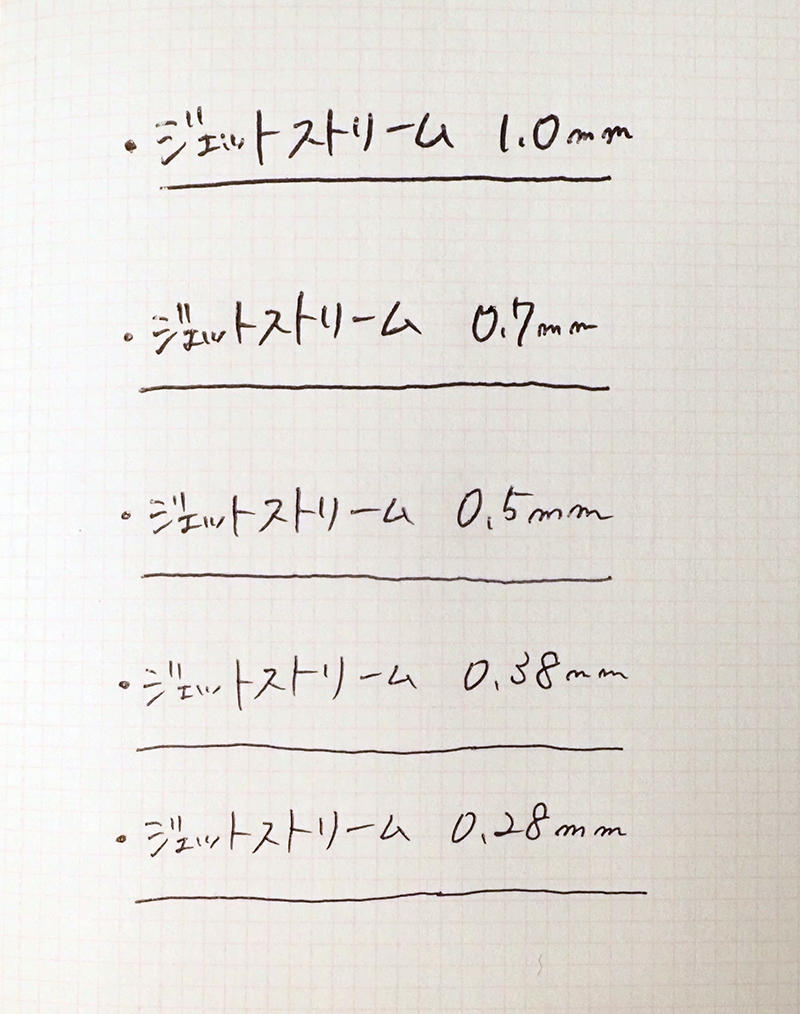 ・ジェットストリーム 1.0mm
・ジェットストリーム 0.7mm
・ジェットストリーム 0.5mm
・ジェットストリーム 0.38mm
・ジェットストリーム 0.28mm